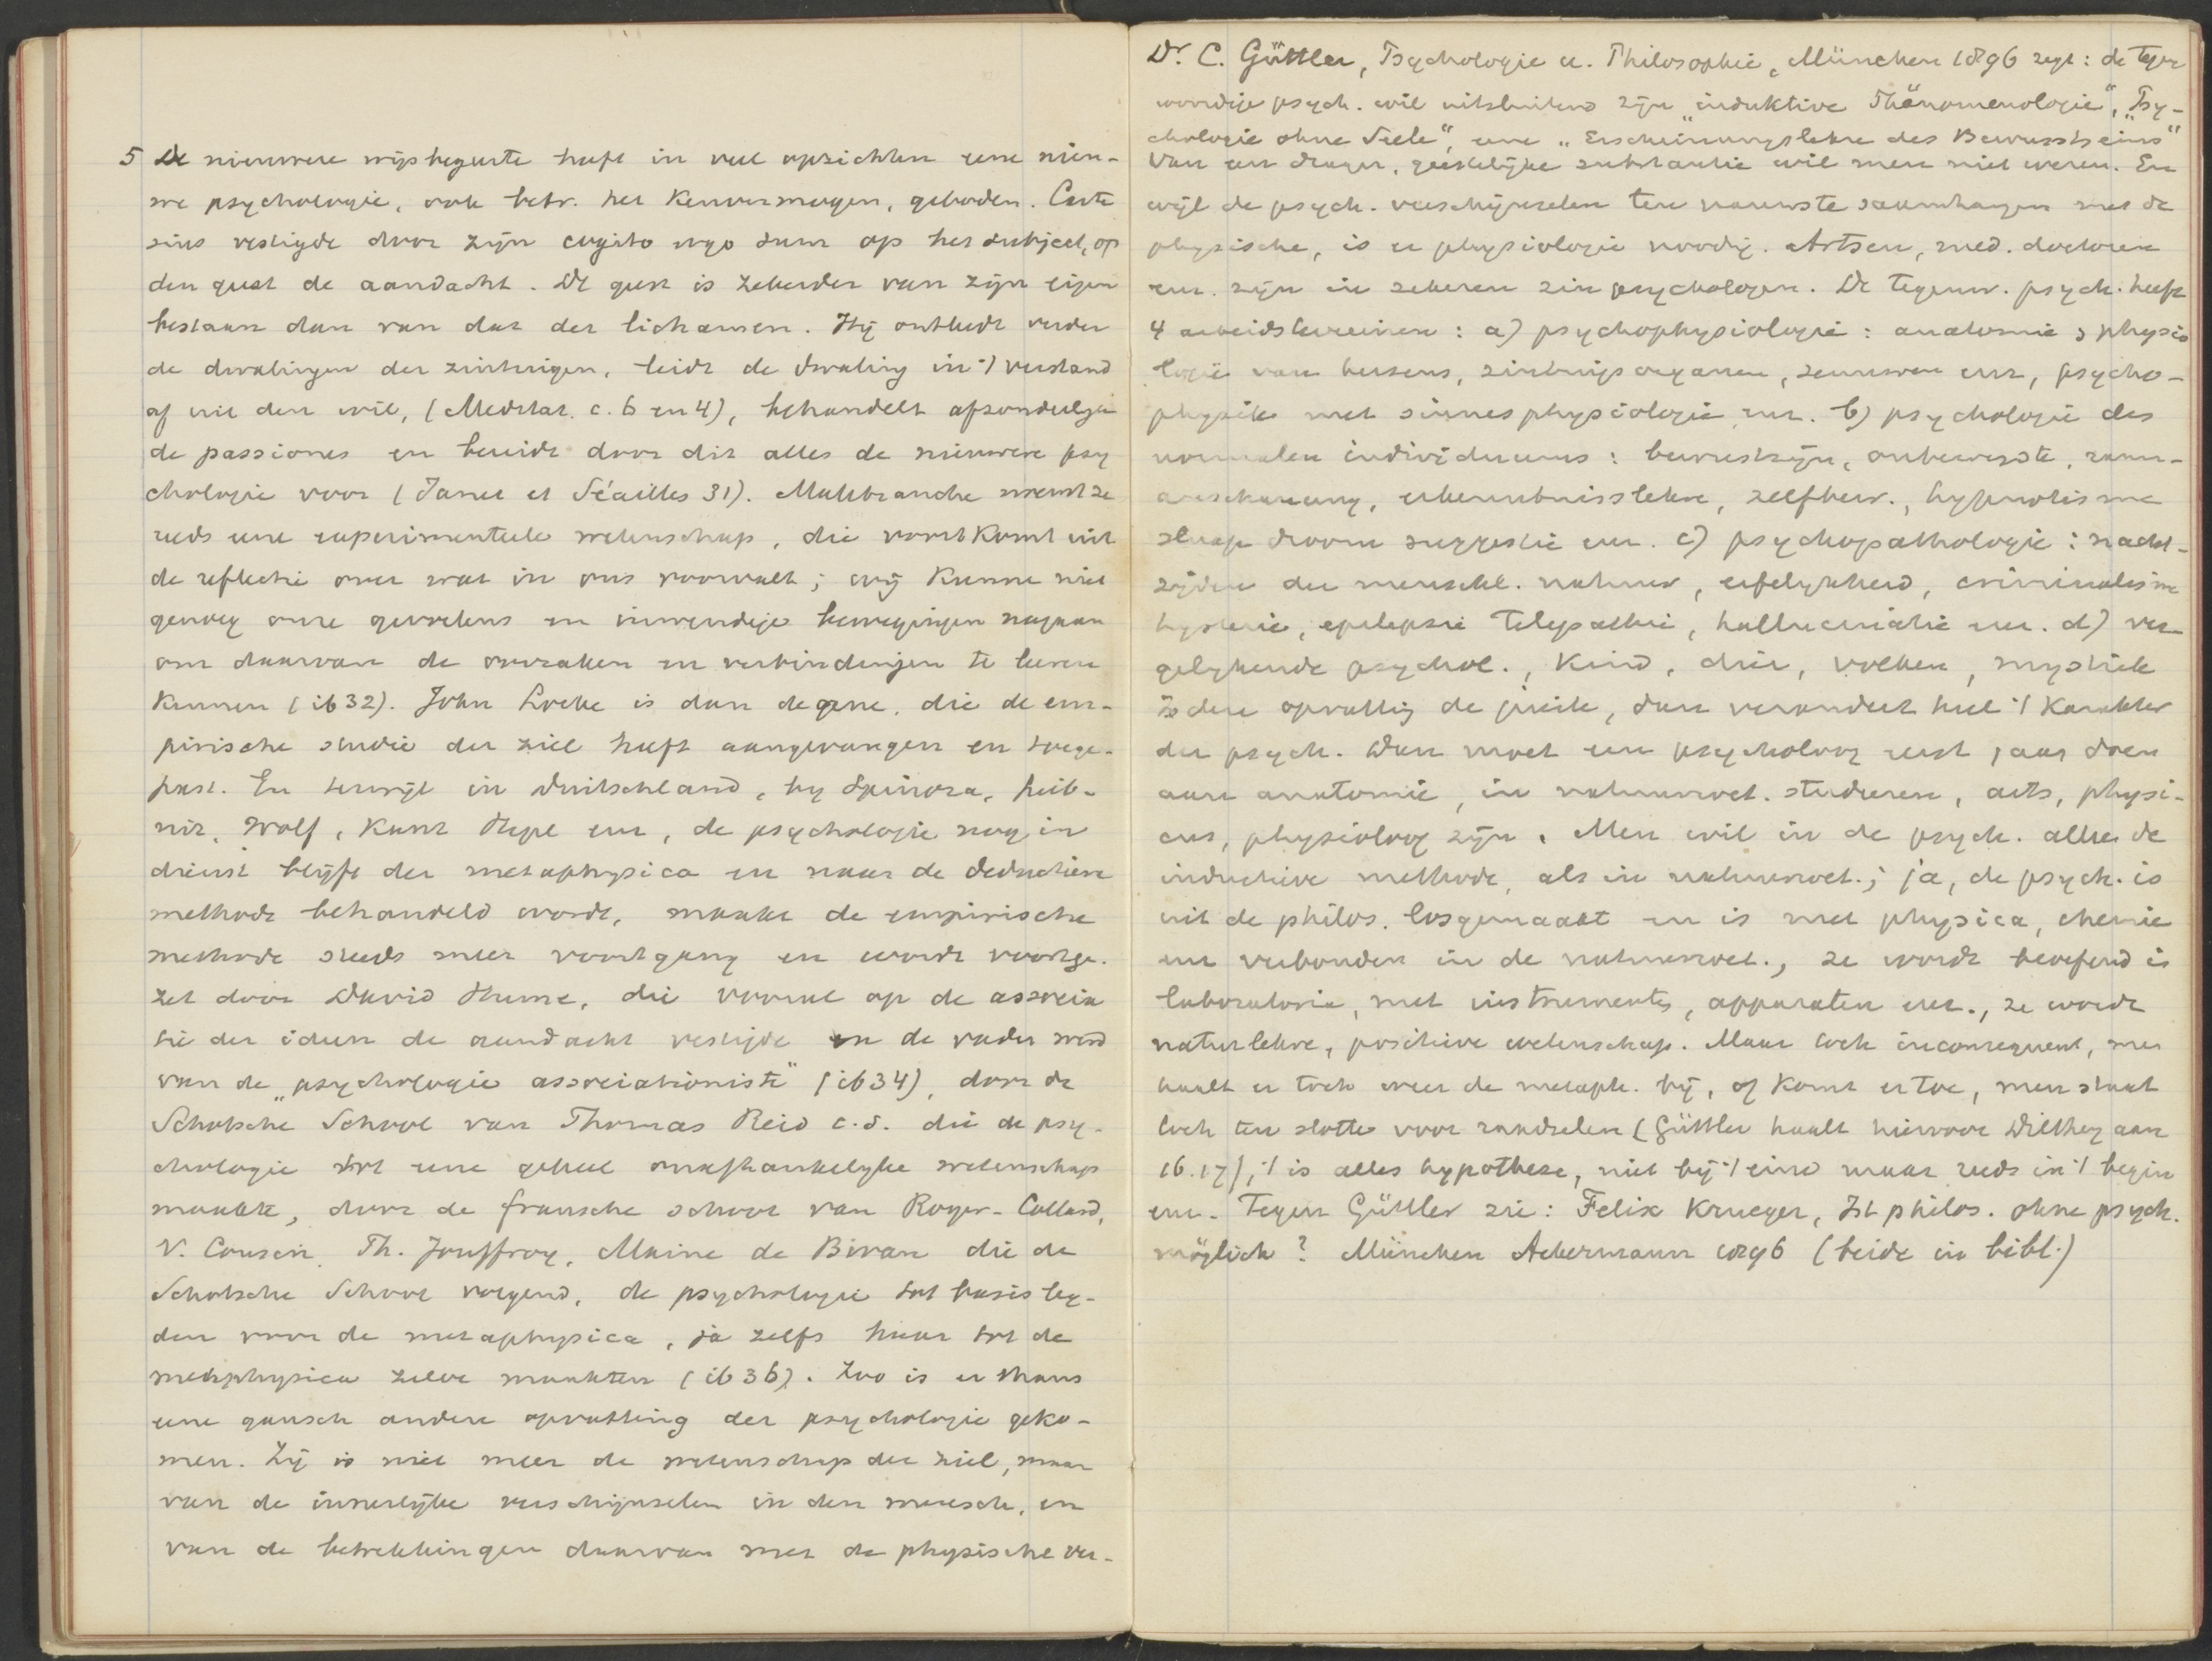 5 De nieuwere wijsbegeerte heeft in veel opzichten eene nieu-
we psychologie, ook betr. het Kenvermogen, geboden. Carte
sius vestigde door zijn cogito ergo sum op het subject, op
den geest de aandacht. De geest is zekerder van zijn eigen
bestaan dan van dat der lichamen. Hij ontleedt verder
de dwalingen der zintuigen, leidt de dwaling in 't verstand
af uit den wil, (Meditat. c. 6 en 4), behandelt afzonderlijk
de passiones en bereidt door dit alles de nieuwere psy
chologie voor (Janet et Séailles 31). Malebranche noemt ze
reeds eene experimenteele wetenschap, die voortkomt uit
de reflectie over wat in ons voorvalt; wij kunnen niet
genoeg onze gevoelens en inwendige bewegingen nagaan
om daarvan de oorzaken en verbindingen te leeren
kennen (ib 32). John Locke is dan degene, die de em-
pirische studie der ziel heeft aangevangen en toege-
past. En terwijl in Duitschland, by Spinoza, Leib-
niz, Wolf, Kant Hegel enz, de psychologie nog in
dienst blijft der metaphysica en naar de deductieve
methode behandeld wordt, maakt de empirische
methode steeds meer voortgang en wordt voortge-
zet door David Hume, die vooral op de associa
tie der ideen de aandacht vestigde en de vader werd
van de „psychologie associationiste" (ib 34), door de
Schotsche School van Thomas Reid c.s. die de psy-
chologie tot eene geheel onafhankelyke wetenschap
maakte, door de fransche school van Royer-Collard,
V. Cousin, Th. Jouffroy, Maine de Biran die de
Schotsche School volgend, de psychologie tot basis leg-
den voor de metaphysica, ja zelfs haar tot de
metaphysica zelve maakten (ib 36). Zoo is er thans
eene gansch andere opvatting der psychologie geko-
men. Zij is niet meer de wetenschap der ziel, maar
van de innerlijke verschijnselen in den mensch, en
van de betrekkingen daarvan met de physische ver-
Dr. C. Güttler, Psychologie u. Philosophie, München 1896 zegt: de tegen
woordige psych. wil uitsluitend zijn „induktive Phänomenologie", „Psy-
chologie ohne Seele", eene „Erscheinungslehre des Bewusstseins"
Van een drager, geestelijke substantie wil men niet weten. En
wijl de psych. verschijnselen ten nauwste saamhangen met de
physische, is er physiologie noodig. Artsen, med. doctoren
enz. zijn in zekeren zin psychologen. De tegenw. psych. heeft
4 arbeidsterreinen: a) psychophysiologie: anatomie & physio
logie van hersens, zintuigsorganen, zenuwen enz, psycho-
physik met sinnesphysiologie enz. b) psychologie des
normalen individuums: bewustzijn, onbewuste, raum-
anschauung, erkenntnisslehre, zelfbew., hypnotisme
slaap droom suggestie enz. c) psychopathologie: nacht-
zijden der menschl. natuur, erfelykheid, criminalisme
hysterie, epilepsie telepathie, hallucinatie enz. d) ver
gelykende psychol., kind, dier, volken, mystiek
Is deze opvatting de juiste, dan verandert heel 't karakter
der psych. Dan moet een psycholoog eerst jaar doen
aan anatomie, in natuurwet. studeren, arts, physi-
cus, physioloog zijn. Men wil in de psych. alleen de
inductieve methode, als in natuurwet.; ja, de psych. is
uit de philos. losgemaakt en is met physica, chemie
enz verbonden in de natuurwet., ze wordt beoefend in
laboratoria, met instrumenten, apparaten enz., ze wordt
naturlehre, positieve wetenschap. Maar toch inconsequent, men
haalt er toch weer de metaph. bij, of komt er toe, men staat
toch ten slotte voor raadselen (Güttler haalt hiervoor Dilthey aan
16.17), 't is alles hypothese, niet bij 't eind maar reeds in 't begin
enz. Tegen Güttler zie: Felix Krueger, Ist philos. ohne psych.
möglich? München Ackermann 1896 (beide in bibl.)